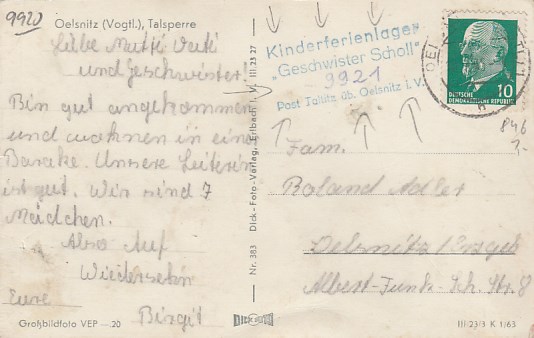 9920
Oelsnitz (Vogtl.), Talsperre
Liebe Mutti Vati
und Geschwister!
Bin gut angekommen
und wohnen in eine
Baracke. Unsere Leiterin
ist gut. Wir sind 7
Mädchen.
Also Auf
Wiedersehn
Eure
Birgit
Großbildfoto VEP — 20
Nr. 383 Dick-Foto-Verlag, Erlbach i. V. III 23 27
DICK
Kinderferienlager
"Geschwister Scholl"
9921
Post Taltitz üb. Oelsnitz i. V.
10
DEUTSCHE
DEMOKRATISCHE REPUBLIK
846
1-
Fam.
Roland Adler
Oelsnitz/Erzgeb
Albert-Funk-Sch. Str. 8
III/23/3 K 1/63